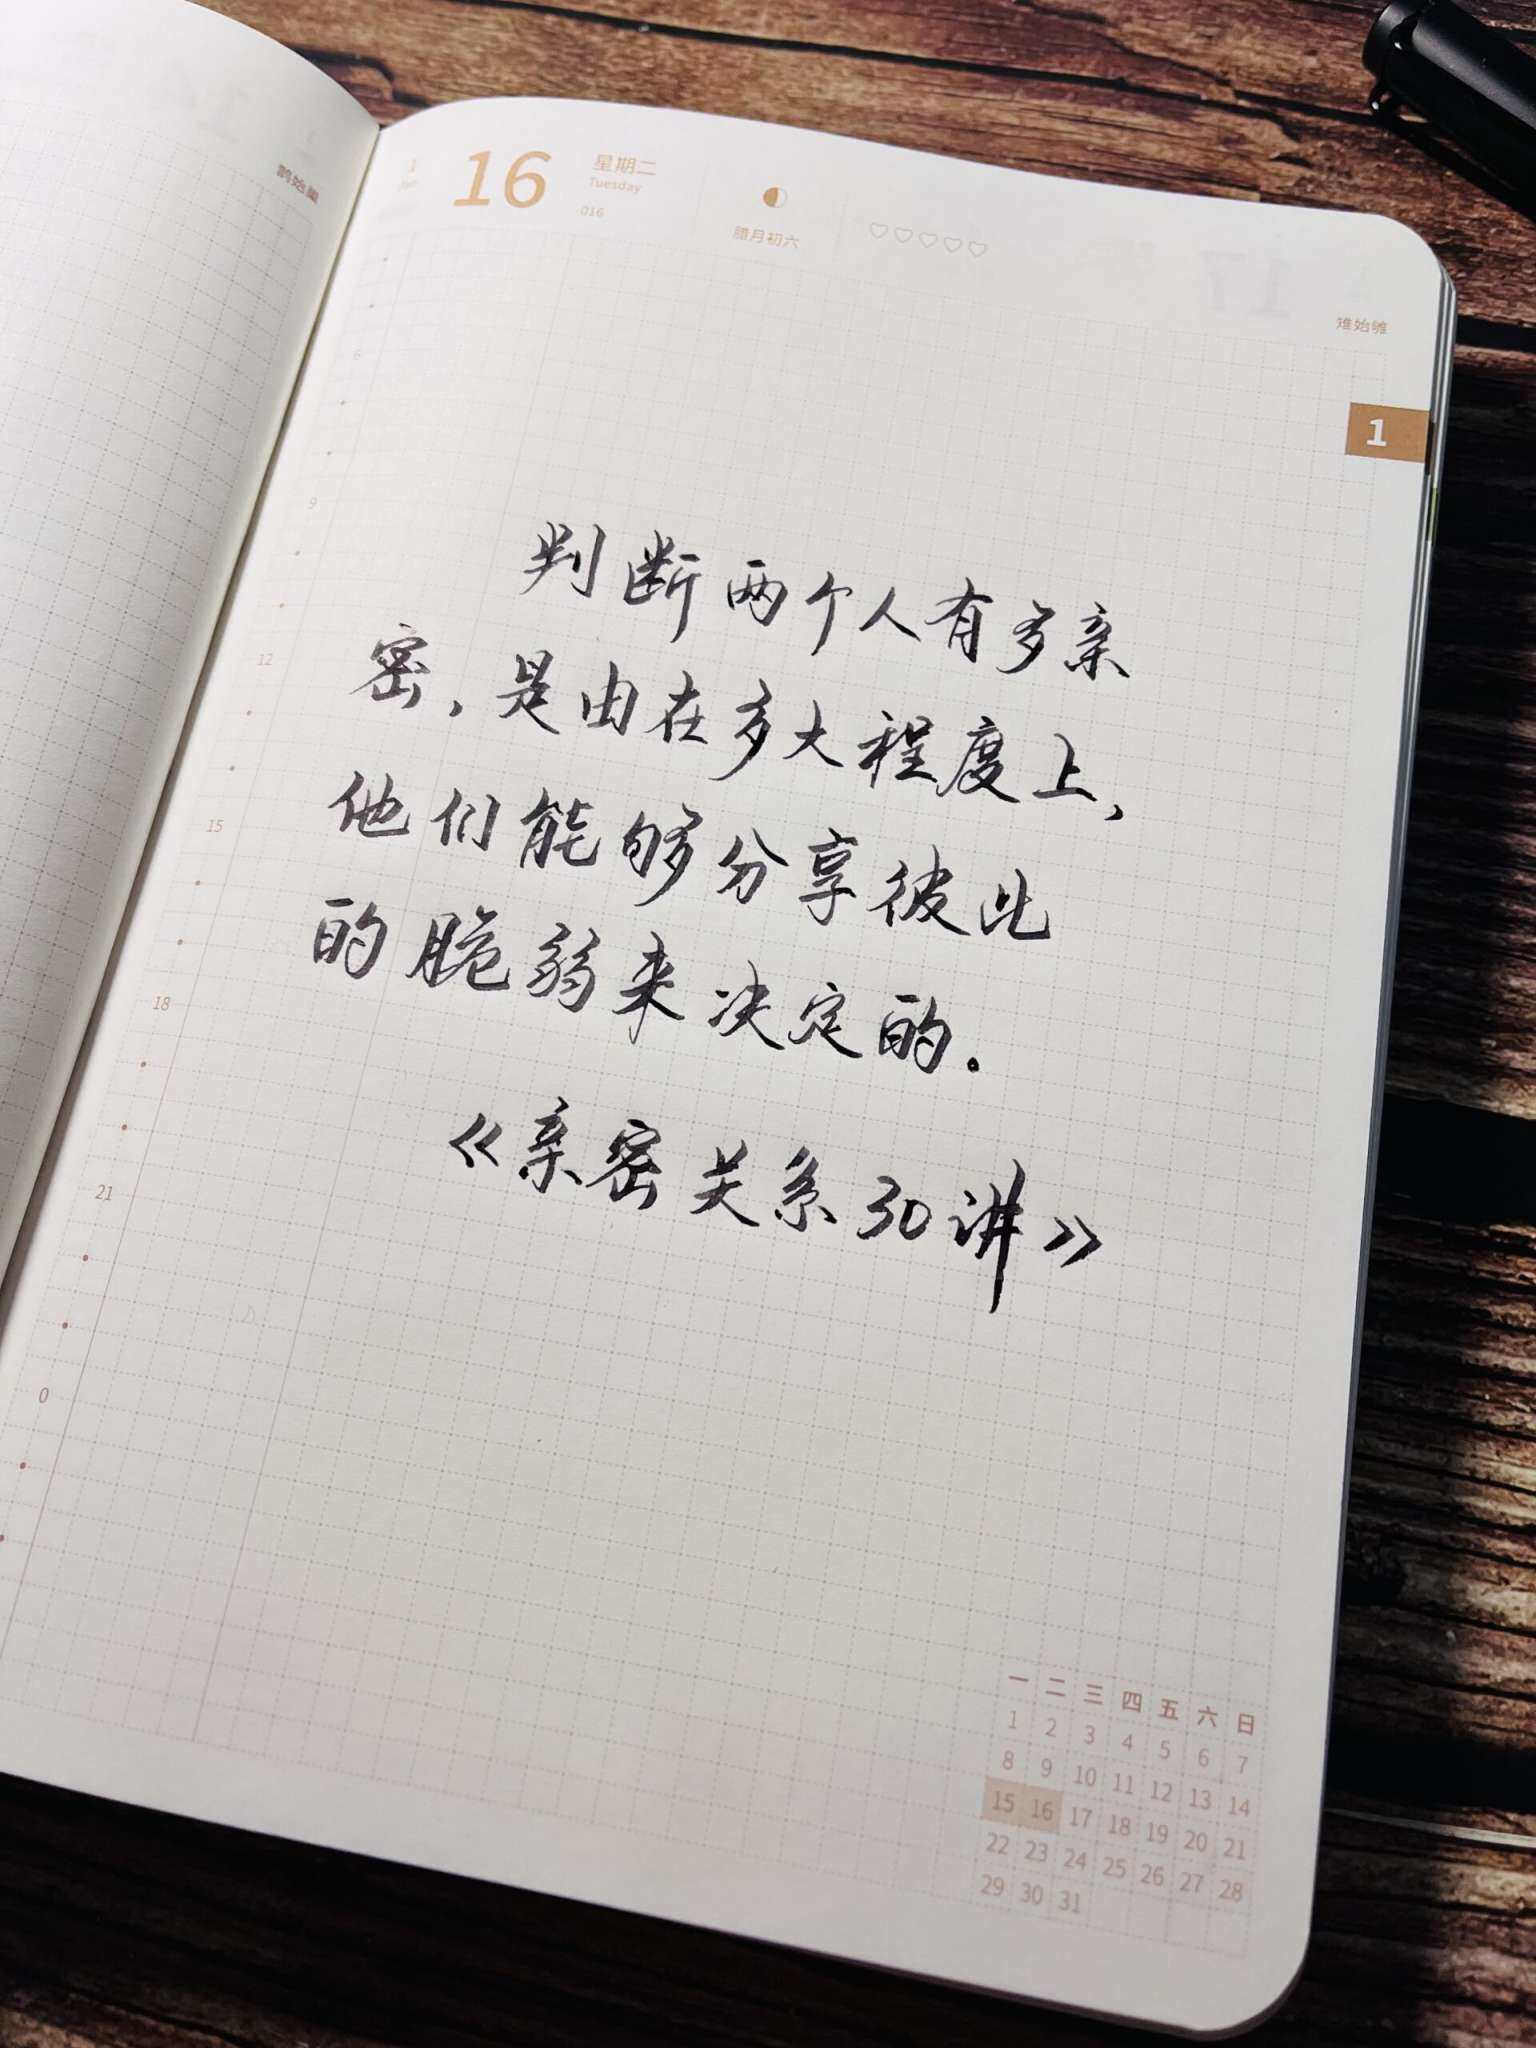 1
Jan
16
星期二
Tuesday
016
腊月初六
雉始雊
1
6
9
12
15
18
21
0
判断两个人有多亲
密，是由在多大程度上，
他们能够分享彼此
的脆弱来决定的。
《亲密关系30讲》
一 二 三 四 五 六 日
1 2 3 4 5 6 7
8 9 10 11 12 13 14
15 16 17 18 19 20 21
22 23 24 25 26 27 28
29 30 31